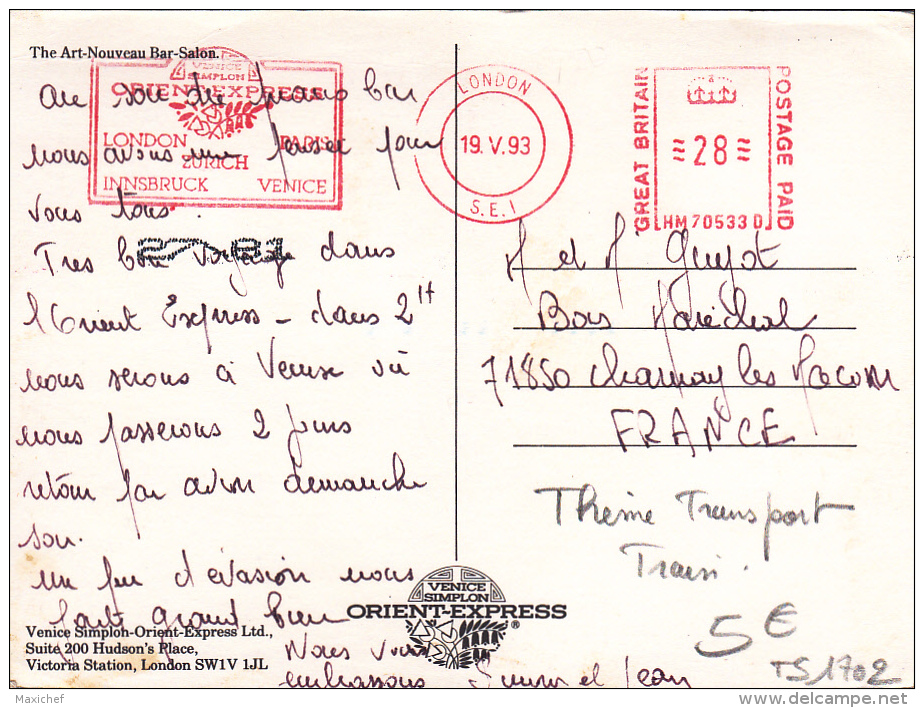 The Art-Nouveau Bar-Salon.
VENICE
SIMPLON
ORIENT-EXPRESS
LONDON PARIS
ZURICH
INNSBRUCK VENICE
LONDON
19. V. 93
S.E.1
GREAT BRITAIN
28
POSTAGE PAID
HM 70533 D
au son du piano bar
nous avons une pensée pour
vous tous.
Tres bon voyage dans
l'Orient Express - dans 2H
nous serons à Venise où
nous passerons 2 jours
retour par avion demanche
soir.
un peu d'évasion nous
faite grand bien
Nous vous
embrassons et Jean
M et M Guyot
Bois Maréchal
71850 Charnay les Macon
FRANCE
Thème Transport
Train.
5€
TS1702
VENICE
SIMPLON
ORIENT-EXPRESS
®
Venice Simplon-Orient-Express Ltd.,
Suite 200 Hudson's Place,
Victoria Station, London SW1V 1JL
Maxichef